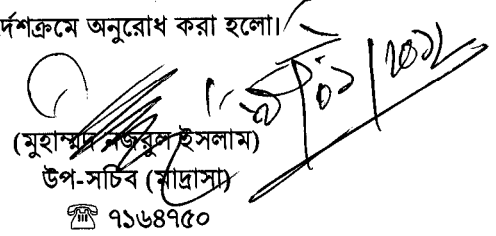 র্দেশক্রমে অনুরোধ করা হলো।
(মুহাম্মদ নজরুল ইসলাম)
উপ-সচিব (মাদ্রাসা)
☎ ৭১৬৪৭৫০